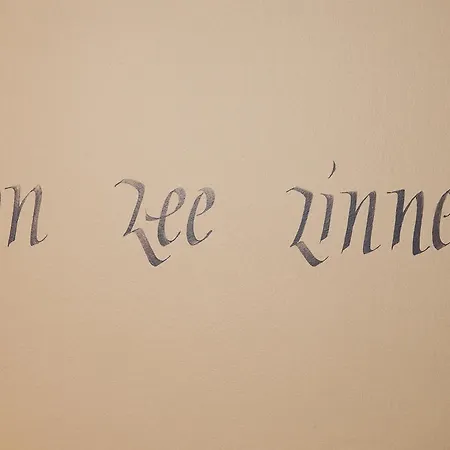 n Zee Zinne